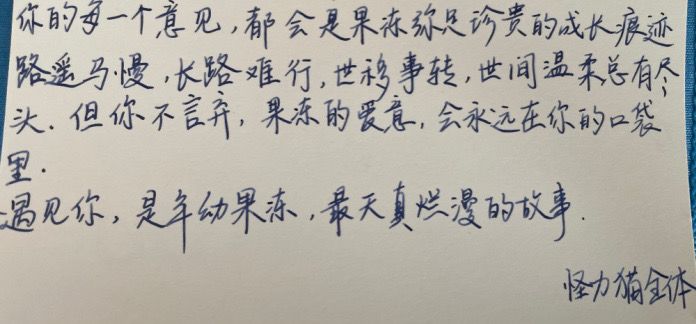 你的每一个意见，都会是果冻弥足珍贵的成长痕迹
路遥马慢，长路难行，世移事转，世间温柔总有尽
头．但你不言弃，果冻的爱意，会永远在你的口袋
里．
遇见你，是年幼果冻，最天真烂漫的故事．
怪力猫全体